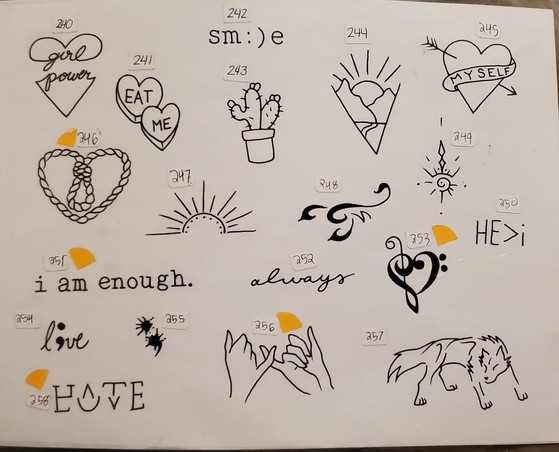 240
girl
power
241
EAT
ME
242
sm:)e
243
244
245
MYSELF
246
247
248
249
250
HE>i
251
i am enough.
252
always
253
254
l;ve
255
256
257
258